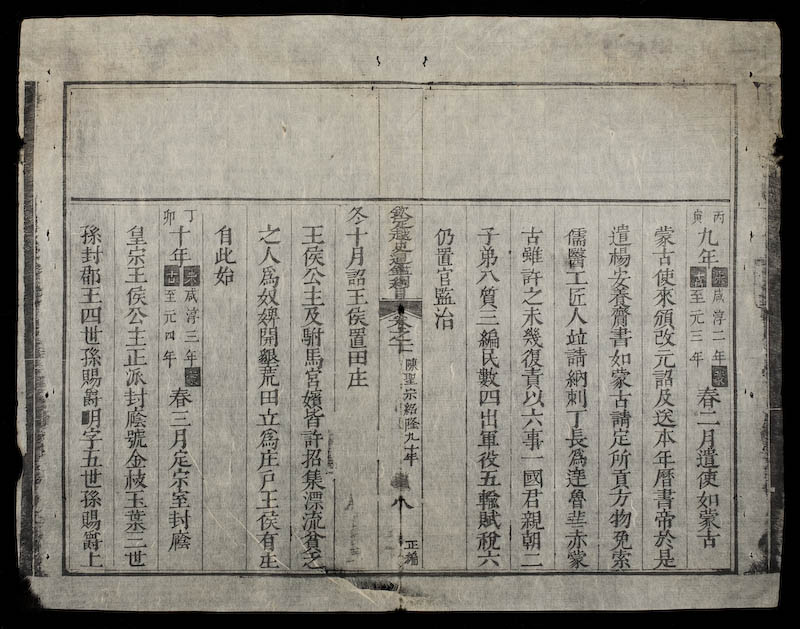 丙寅九年宋咸淳二年蒙古至元三年春二月遣使如蒙古
蒙古使來頒改元詔及送本年曆書帝於是
遣楊安養齎書如蒙古請定所貢方物免索
儒醫工匠人竝請納剌丁長爲達魯華赤蒙
古雖許之未幾復責以六事一國君親朝二
子弟入質三編民數四出軍役五輸賦稅六
仍置官監治
欽定越史通鑑綱目 卷之七 陳聖宗紹隆九十年 八 正編
冬十月詔王侯置田庄
王侯公主及駙馬宮嬪皆許招集漂流貧乏
之人爲奴婢開墾荒田立爲庄戶王侯有庄
自此始
丁卯十年宋咸淳三年蒙古至元四年春三月定宗室封廕
皇宗王侯公主正派封廕號金枝玉葉三世
孫封郡王四世孫賜爵明字五世孫賜爵上